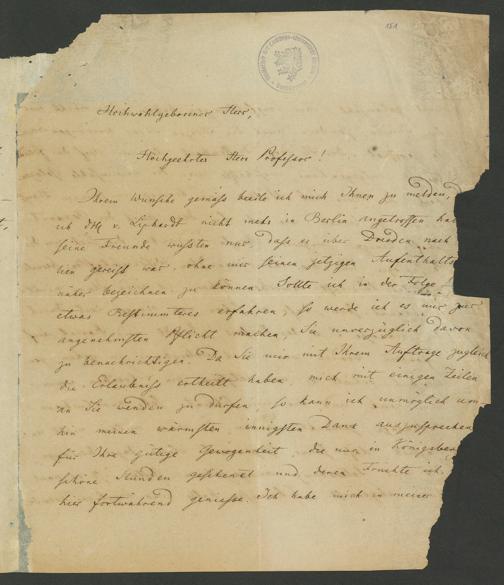 151
Hochwohlgeborener Herr,
Hochgeehrter Herr Professor!
Ihrem Wunsche gemäss beeile ich mich Ihnen zu melden, d
ich v. Liphardt nicht mehr in Berlin angetroffen ha
seine Freunde wußten nur daß er über Dresden nach
lien gereist war, ohne mir seinen jetzigen Aufenthalts
näher bezeichnen zu können. Sollte ich in der Folge
etwas Bestimmteres erfahren, so werde ich es mir zur
angenehmsten Pflicht machen, Sie unverzüglich davon
zu benachrichtigen. Da Sie mir mit Ihrem Auftrage zugleich
die Erlaubniss ertheilt haben mich mit einigen Zeilen
an Sie wenden zu dürfen, so kann ich unmöglich um
hin meinen wärmsten innigsten Dank auszusprechen
für Ihre gütige Gewogenheit, die mir in Königsber
schöne Stunden geschenkt und deren Früchte ich
hier fortwährend geniesse. Ich habe mich in meiner